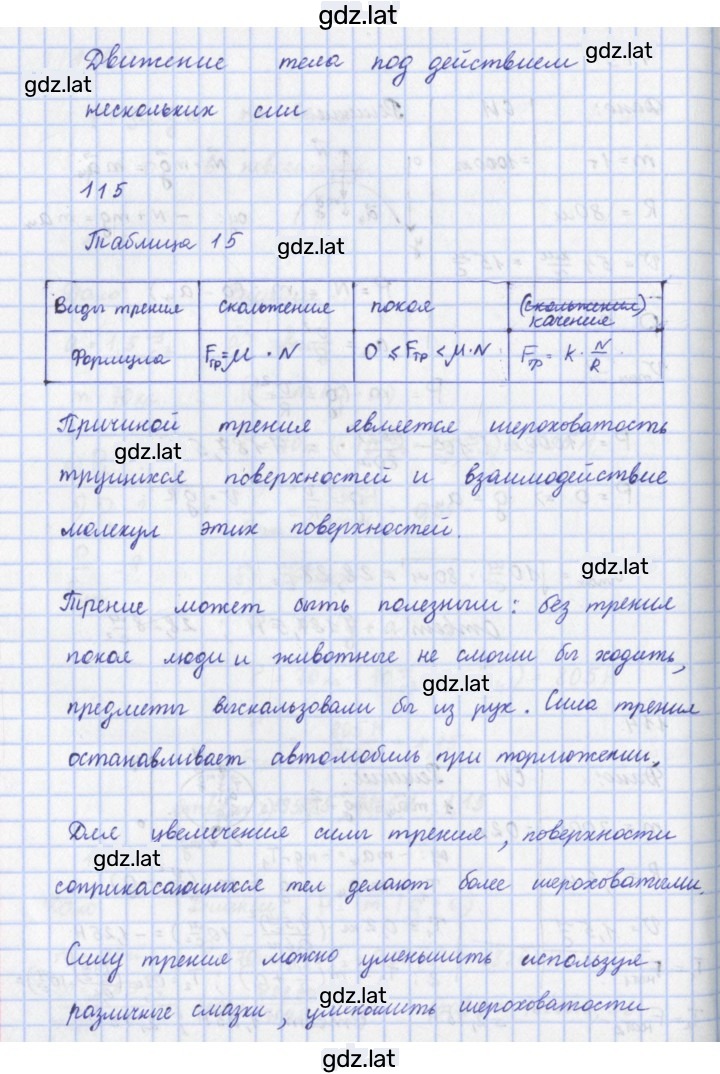 gdz.lat
Движение тела под действием
gdz.lat
gdz.lat
нескольких сил
115
Таблица 15
gdz.lat
Виды трения скольжения покоя (скольжения) качения
Формула Fтр = μ · N 0 ≤ Fтр < μ · N Fтр = k · N/R
Причиной трения является шероховатость
gdz.lat
трущихся поверхностей и взаимодействие
молекул этих поверхностей.
gdz.lat
Трение может быть полезным: без трения
покоя люди и животные не смогли бы ходить,
gdz.lat
предметы выскальзовали бы из рук. Сила трения
останавливает автомобиль при торможении.
Для увеличения силы трения, поверхности
gdz.lat
соприкасающихся тел делают более шероховатыми.
Силу трения можно уменьшить используя
gdz.lat
различные смазки, уменьшить шероховатости
gdz.lat